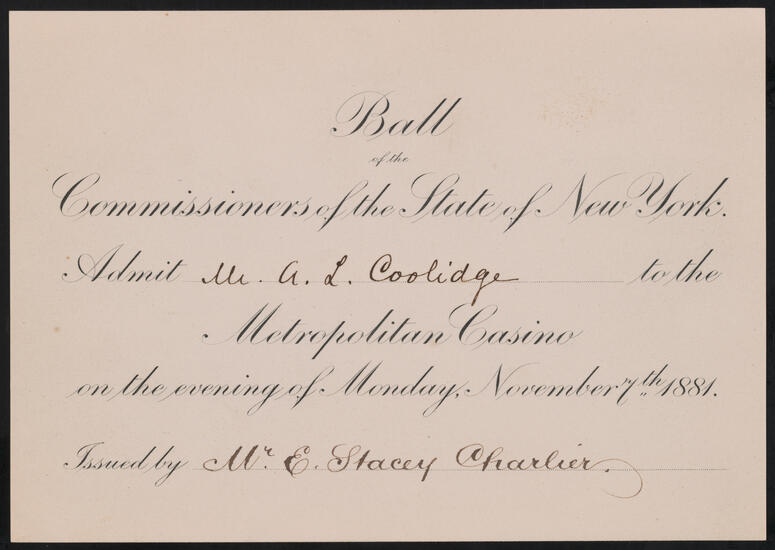 Ball
of the
Commissioners of the State of New York.
Admit Mr. A. L. Coolidge to the
Metropolitan Casino
on the evening of Monday, November 7th 1881.
Issued by Mr. E. Stacey Charlier.